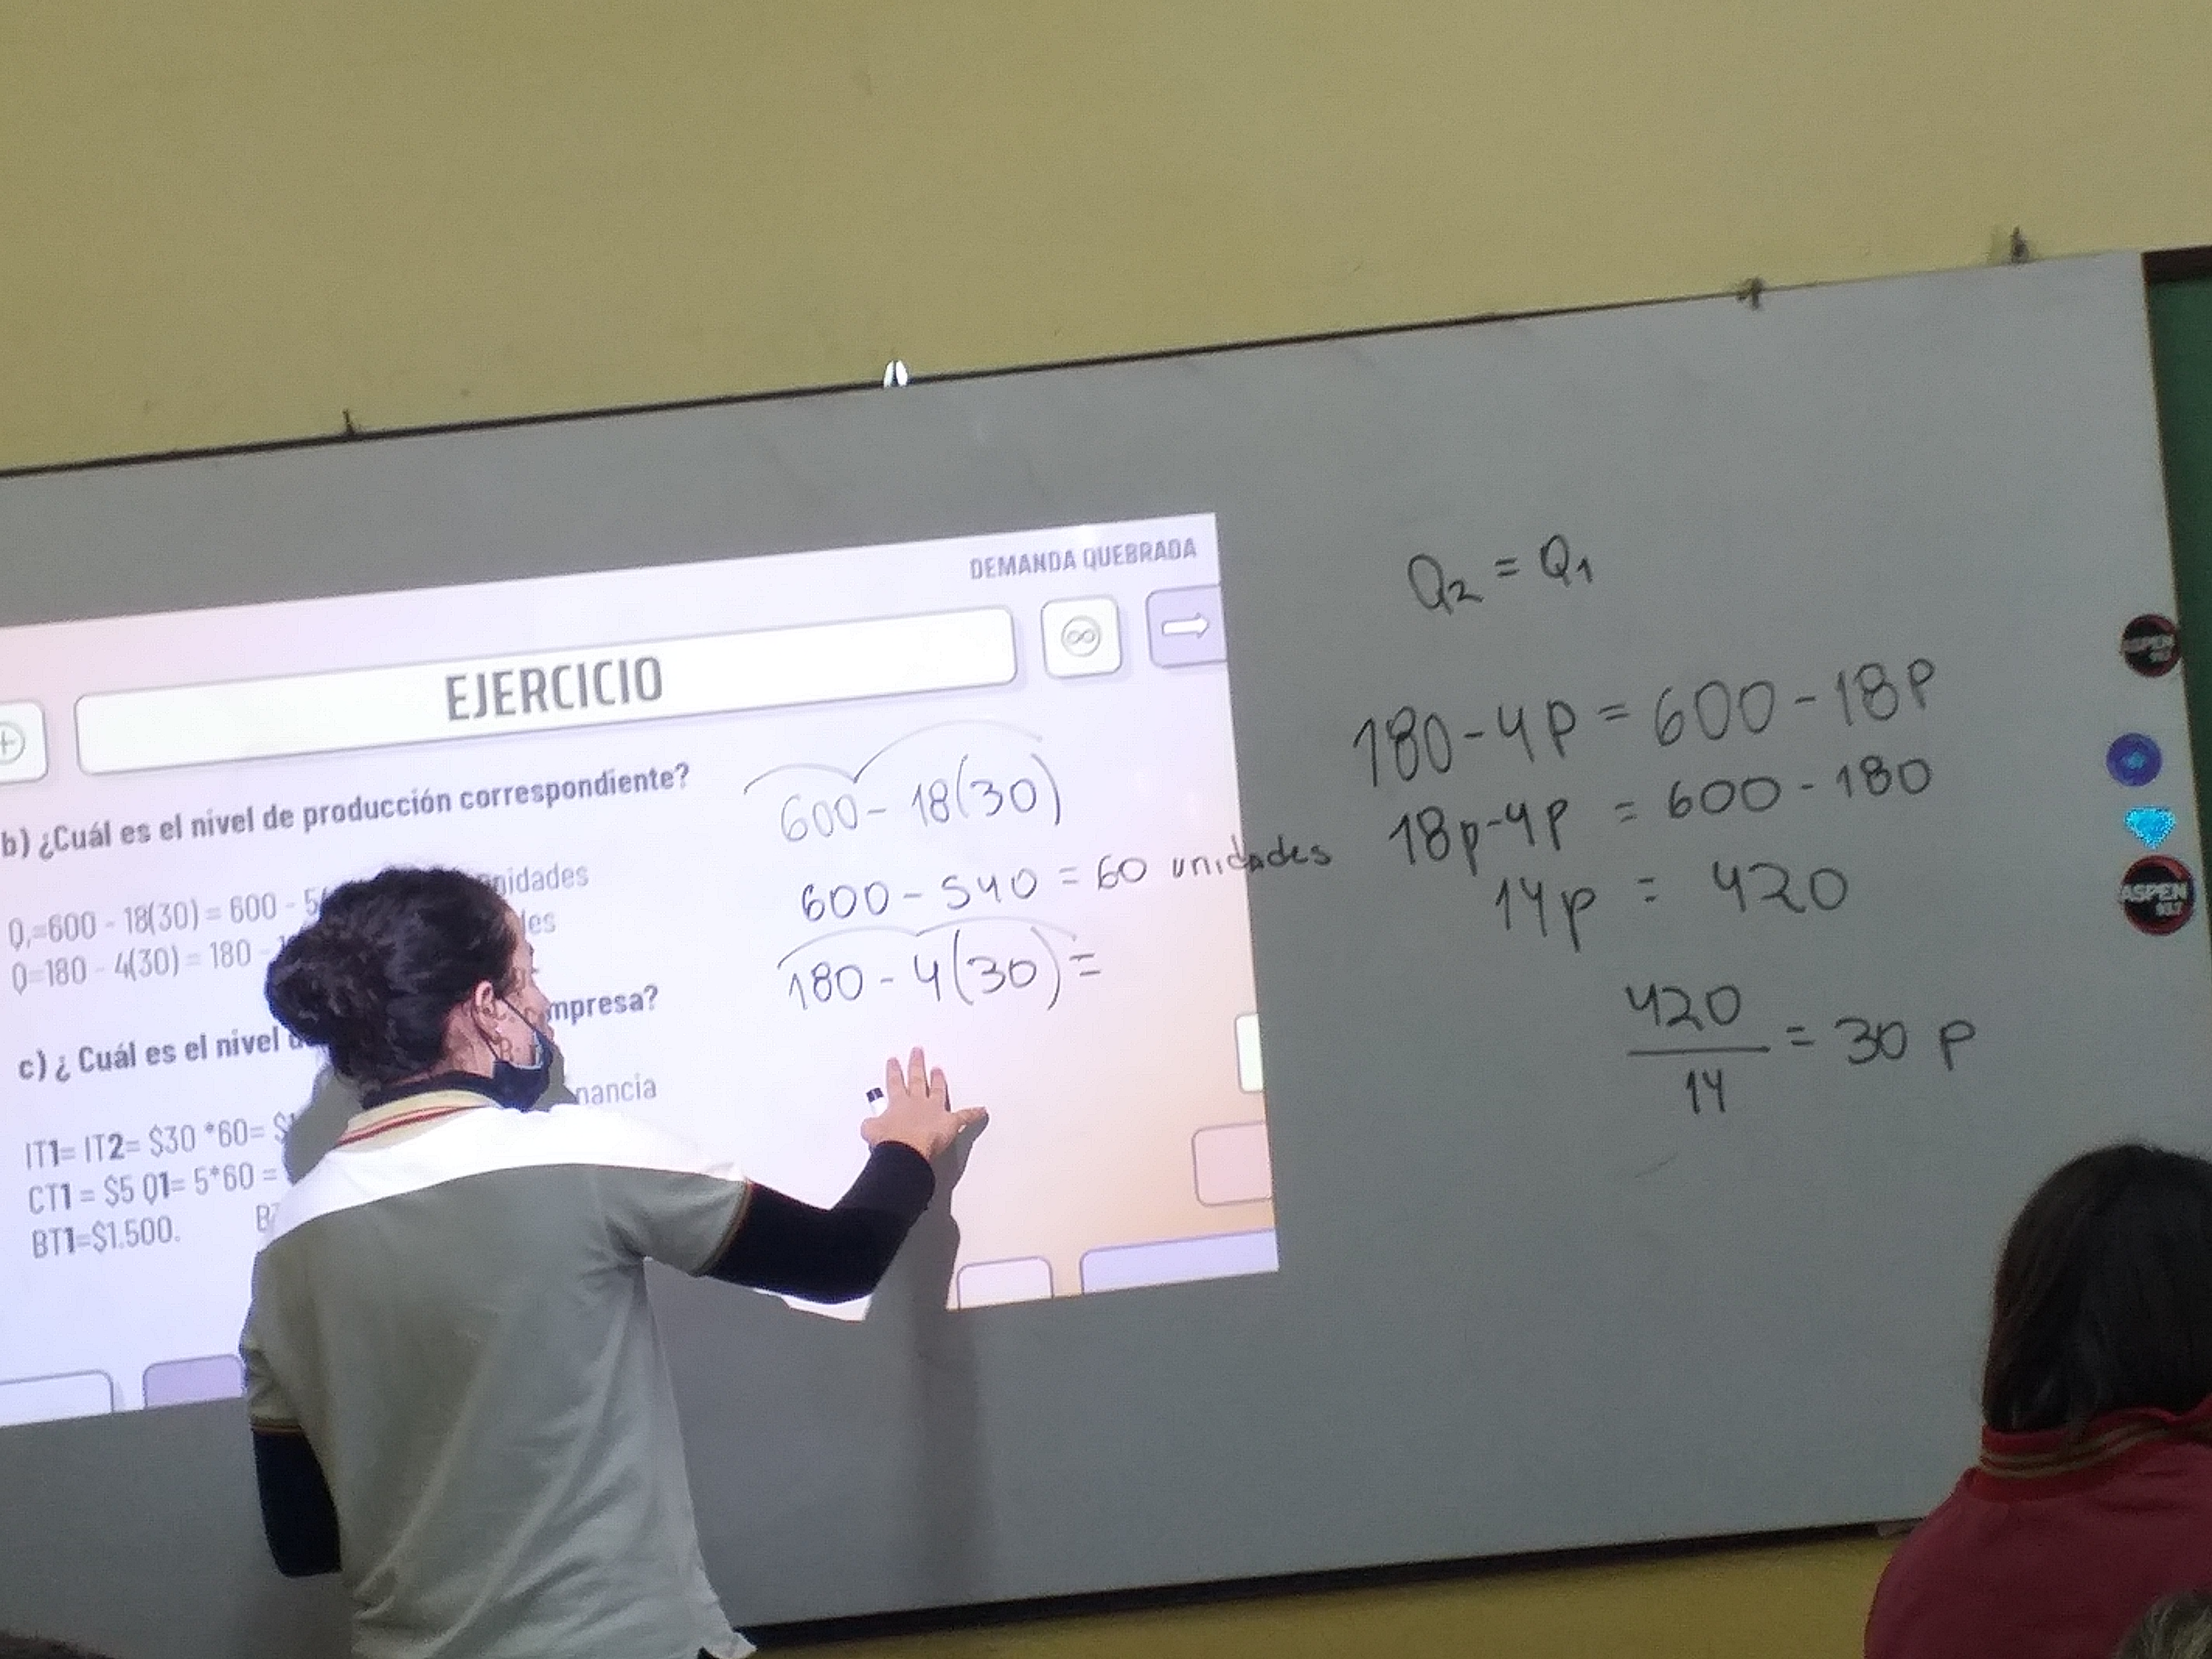 DEMANDA QUEBRADA
EJERCICIO
b) ¿Cuál es el nivel de producción correspondiente?
Q₁=600 - 18(30) = 600 - 5
Q=180 - 4(30) = 180 -
c) ¿ Cuál es el nivel
IT1= IT2= $30 *60= $
CT1 = $5 Q1= 5*60 =
BT1=$1.500.
600 - 18(30)
600 - 540 = 60 unidades
180 - 4(30) =
Q₂ = Q₁
180 - 4P = 600 - 18P
18p - 4p = 600 - 180
14p = 420
420
14
= 30 P
ASPEN
ASPEN